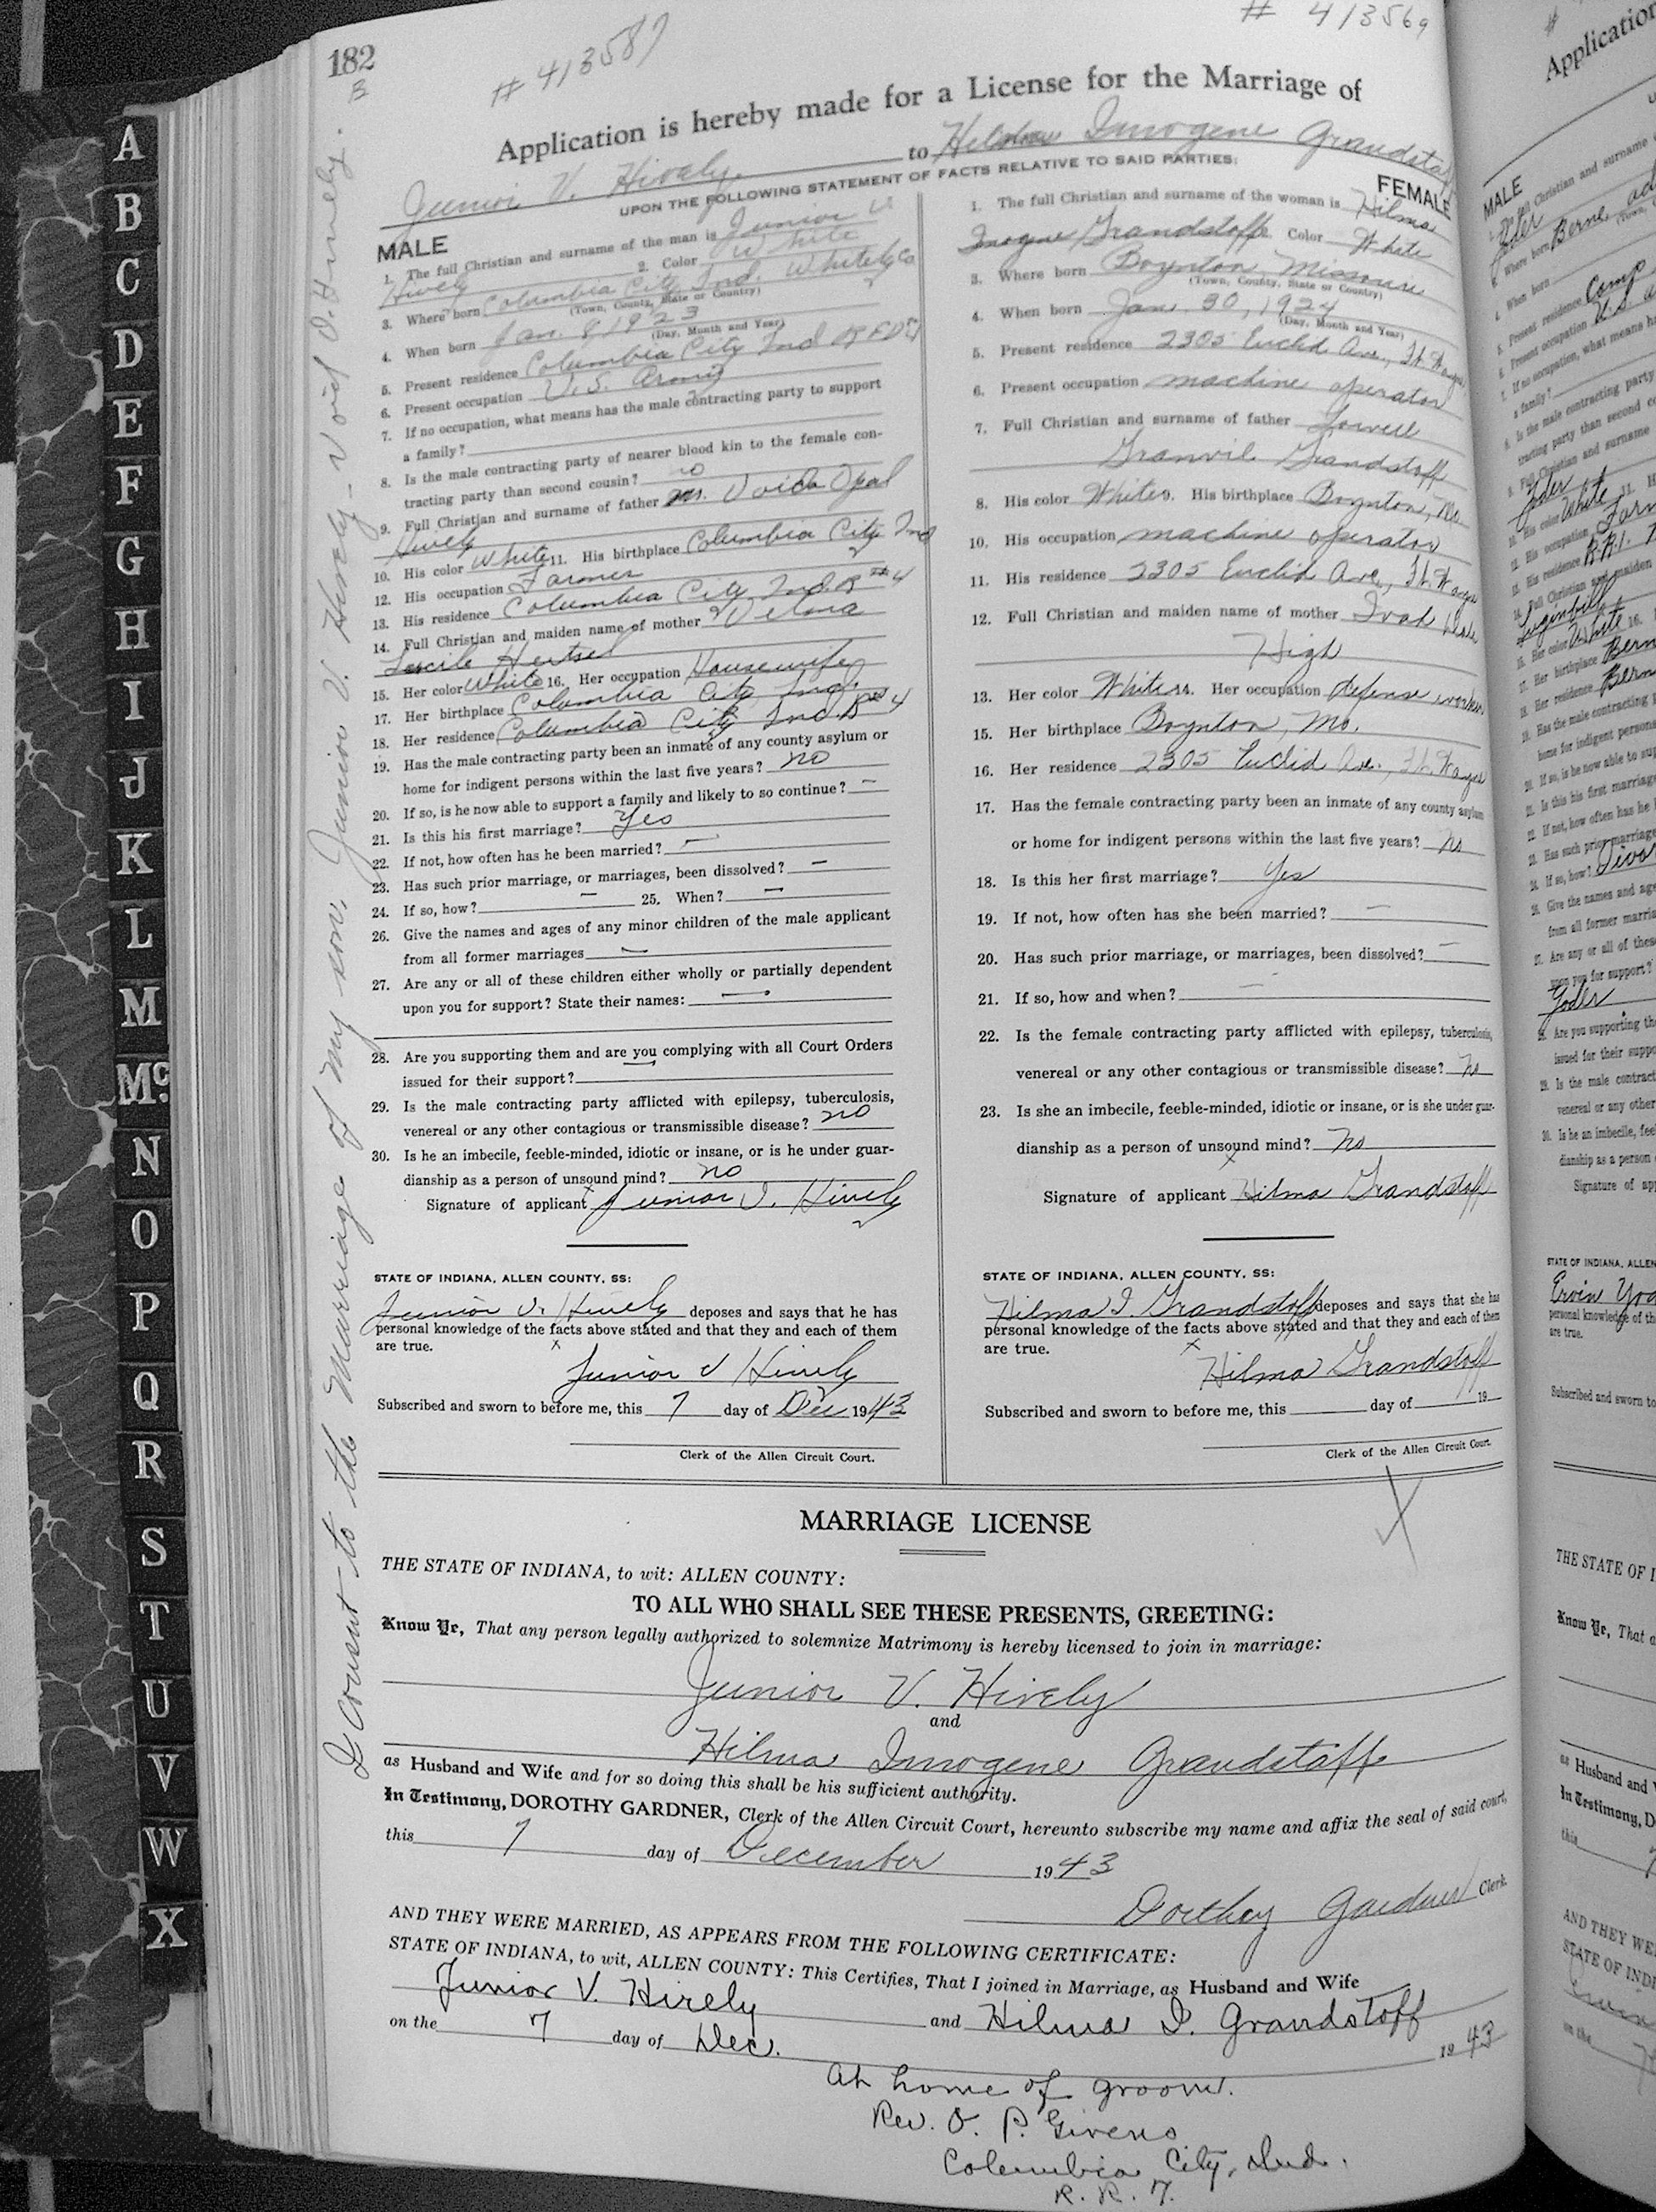 182
B
# 413587
# 413569
Application is hereby made for a License for the Marriage of
Junior V. Hively to Hilma Imogene Grandstaff
UPON THE FOLLOWING STATEMENT OF FACTS RELATIVE TO SAID PARTIES:
MALE
1. The full Christian and surname of the man is Junior V
Hively 2. Color White
3. Where born Columbia City Ind. Whitely Co
(Town, County, State or Country)
4. When born Jan. 8 1923
(Day, Month and Year)
5. Present residence Columbia City Ind RFD 4
6. Present occupation U.S. Army
7. If no occupation, what means has the male contracting party to support
a family?
8. Is the male contracting party of nearer blood kin to the female con-
tracting party than second cousin? no
9. Full Christian and surname of father Void Opal
Hively
10. His color White 11. His birthplace Columbia City Ind
12. His occupation Farmer
13. His residence Columbia City Ind. R #4
14. Full Christian and maiden name of mother Velma
Lucile Hertsel
15. Her color White 16. Her occupation Housewife
17. Her birthplace Columbia City Ind.
18. Her residence Columbia City Ind. R #4
19. Has the male contracting party been an inmate of any county asylum or
home for indigent persons within the last five years? no
20. If so, is he now able to support a family and likely to so continue? —
21. Is this his first marriage? Yes
22. If not, how often has he been married? —
23. Has such prior marriage, or marriages, been dissolved? —
24. If so, how? — 25. When? —
26. Give the names and ages of any minor children of the male applicant
from all former marriages —
27. Are any or all of these children either wholly or partially dependent
upon you for support? State their names: —
28. Are you supporting them and are you complying with all Court Orders
issued for their support? —
29. Is the male contracting party afflicted with epilepsy, tuberculosis,
venereal or any other contagious or transmissible disease? no
30. Is he an imbecile, feeble-minded, idiotic or insane, or is he under guar-
dianship as a person of unsound mind? no
Signature of applicant x Junior V. Hively
STATE OF INDIANA, ALLEN COUNTY, SS:
Junior V. Hively deposes and says that he has
personal knowledge of the facts above stated and that they and each of them
are true.
x Junior V Hively
Subscribed and sworn to before me, this 7 day of Dec 1943
Clerk of the Allen Circuit Court.
FEMALE
1. The full Christian and surname of the woman is Hilma
Imogene Grandstaff Color White
3. Where born Boynton, Missouri
(Town, County, State or Country)
4. When born Jan. 30, 1924
(Day, Month and Year)
5. Present residence 2305 Euclid Ave., Ft. Wayne
6. Present occupation machine operator
7. Full Christian and surname of father Lowell
Granvil Grandstaff
8. His color White 9. His birthplace Boynton, Mo.
10. His occupation machine operator
11. His residence 2305 Euclid Ave., Ft. Wayne
12. Full Christian and maiden name of mother
High
13. Her color White 14. Her occupation defense worker
15. Her birthplace Boynton, Mo.
16. Her residence 2305 Euclid Ave., Ft. Wayne
17. Has the female contracting party been an inmate of any county asylum
or home for indigent persons within the last five years? No
18. Is this her first marriage? Yes
19. If not, how often has she been married? —
20. Has such prior marriage, or marriages, been dissolved? —
21. If so, how and when? —
22. Is the female contracting party afflicted with epilepsy, tuberculosis,
venereal or any other contagious or transmissible disease? No
23. Is she an imbecile, feeble-minded, idiotic or insane, or is she under guar-
dianship as a person of unsound mind? No
Signature of applicant x Hilma Grandstaff
STATE OF INDIANA, ALLEN COUNTY, SS:
Hilma I. Grandstaff deposes and says that she has
personal knowledge of the facts above stated and that they and each of them
are true.
x Hilma Grandstaff
Subscribed and sworn to before me, this day of 19
Clerk of the Allen Circuit Court.
MARRIAGE LICENSE
THE STATE OF INDIANA, to wit: ALLEN COUNTY:
TO ALL WHO SHALL SEE THESE PRESENTS, GREETING:
Know Ye, That any person legally authorized to solemnize Matrimony is hereby licensed to join in marriage:
Junior V. Hively
and
Hilma Imogene Grandstaff
as Husband and Wife and for so doing this shall be his sufficient authority.
In Testimony, DOROTHY GARDNER, Clerk of the Allen Circuit Court, hereunto subscribe my name and affix the seal of said court,
this 7 day of December 1943
Dorthey Gardner Clerk.
AND THEY WERE MARRIED, AS APPEARS FROM THE FOLLOWING CERTIFICATE:
STATE OF INDIANA, to wit, ALLEN COUNTY: This Certifies, That I joined in Marriage, as Husband and Wife
Junior V. Hively and Hilma I. Grandstoff
on the 7 day of Dec. 1943
At home of groom.
Rev. O. P. Givens
Columbia City, Ind.
R. R. 7.
I consent to the Marriage of my son, Junior V. Hively - Void O. Hively.
A
B
C
D
E
F
G
H
I
J
K
L
M
Mc.
N
O
P
Q
R
S
T
U
V
W
X